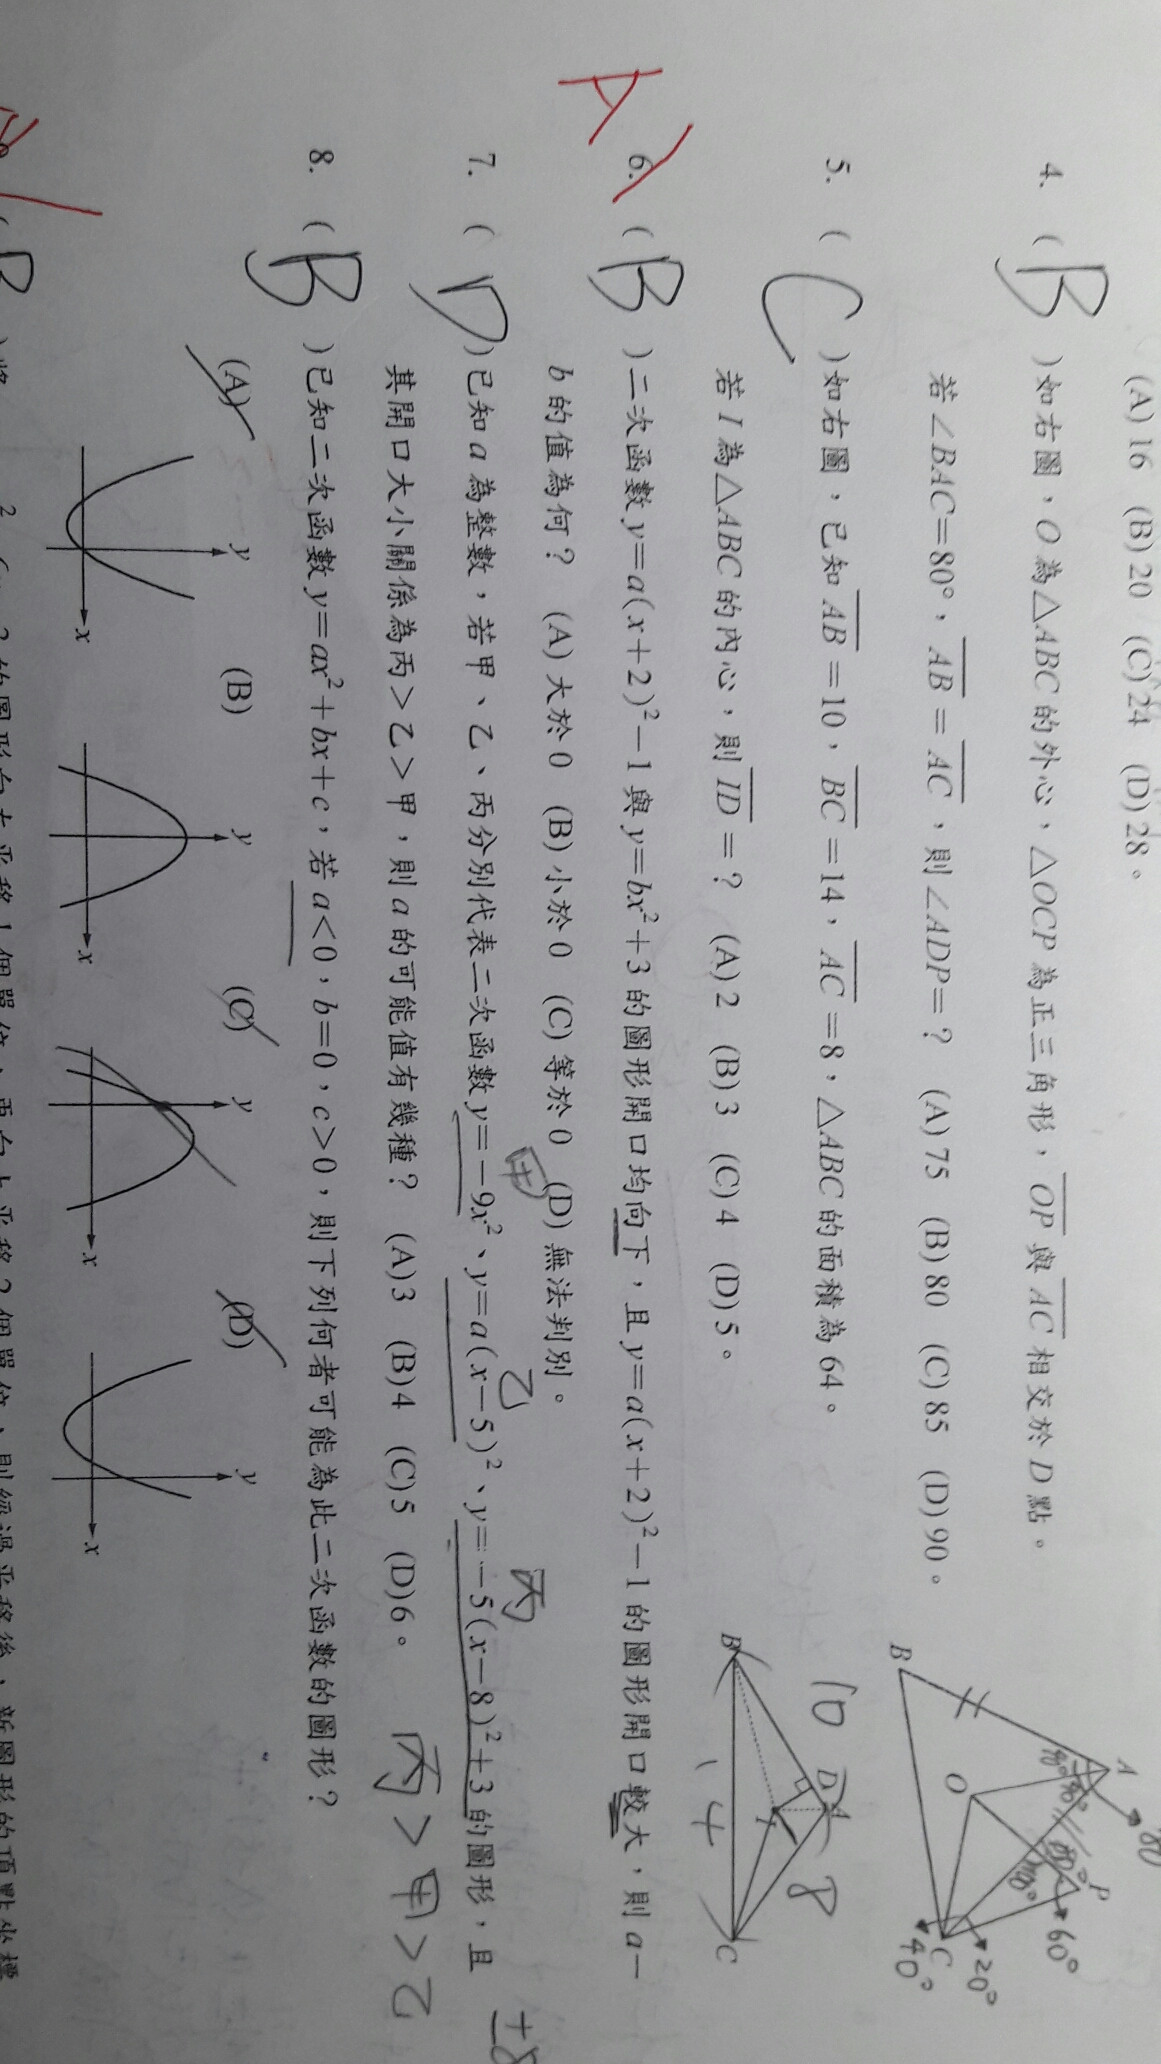 (A) 16 (B) 20 (C) 24 (D) 28。
4. ( B )如右圖，O為△ABC的外心，△OCP為正三角形，OP與AC相交於D點。
若∠BAC=80°，AB=AC，則∠ADP=？ (A) 75 (B) 80 (C) 85 (D) 90。
A
B
O
P
C
80
40°
40°
60°
20°
40°
5. ( C )如右圖，已知AB=10，BC=14，AC=8，△ABC的面積為64。
若I為△ABC的內心，則ID=？ (A) 2 (B) 3 (C) 4 (D) 5。
10
D
A
8
B
I
C
14
A
6. ( B )二次函數y=a(x+2)²−1與y=bx²+3的圖形開口均向下，且y=a(x+2)²−1的圖形開口較大，則a−
b的值為何？ (A) 大於0 (B) 小於0 (C) 等於0 (D) 無法判別。
甲 乙 丙
7. ( D )已知a為整數，若甲、乙、丙分別代表二次函數y=−9x²、y=a(x−5)²、y=−5(x−8)²+3的圖形，且
其開口大小關係為丙>乙>甲，則a的可能值有幾種？ (A) 3 (B) 4 (C) 5 (D) 6。
丙>甲>乙
±8
8. ( B )已知二次函數y=ax²+bx+c，若a<0，b=0，c>0，則下列何者可能為此二次函數的圖形？
(A) (B) (C) (D)
y y y y
x x x x
的圖形向左平移1個單位，再向上平移2個單位，則經過平移後，新圖形的頂點坐標